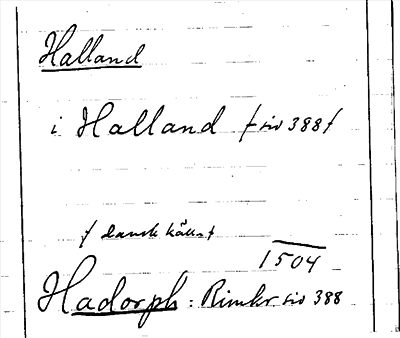 Halland
i Halland /sid 388/
/dansk källa/
1504
Hadorph: Rimkr. sid 388